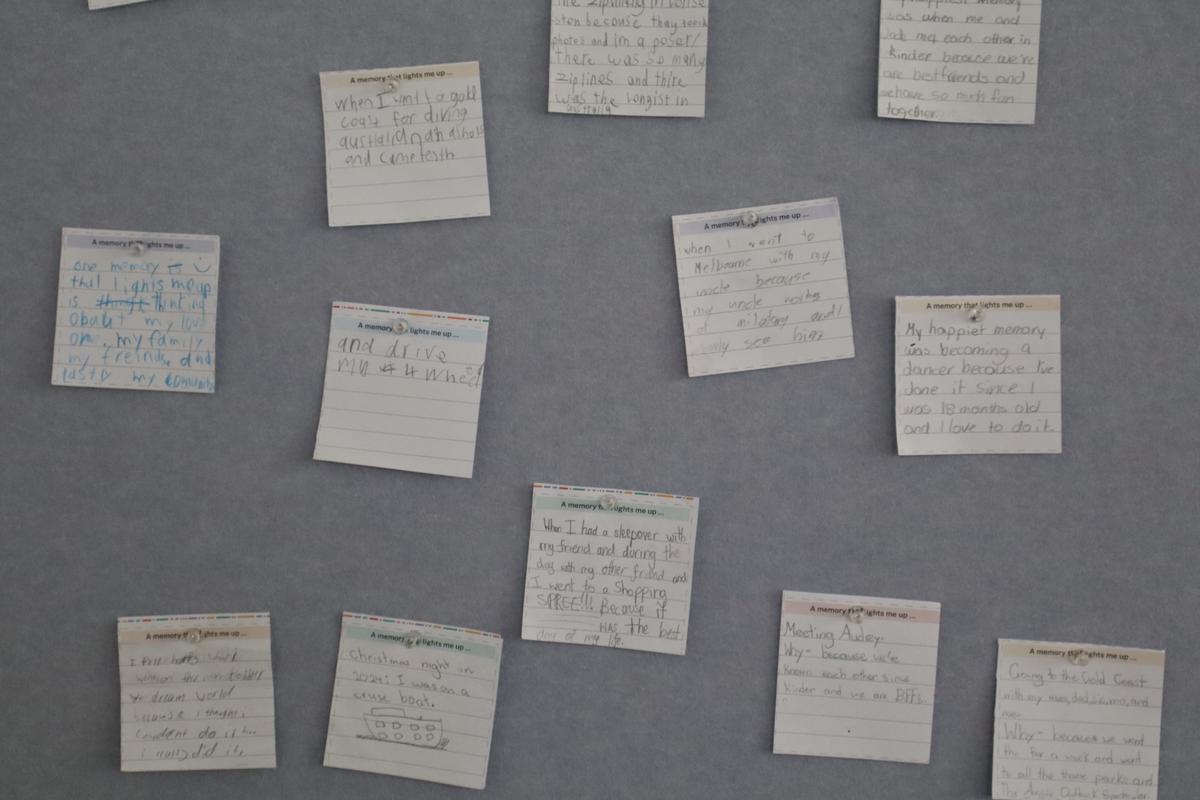 the ziplining in
because they
photos and im a poser/
there was so many
ziplines and thire
was the longist in
was when me and
met each other in
kinder because we're
are bestfreinds and
so much fun
together.
A memory that lights me up ...
when I wnt to gold
for diving
and came
A memory that lights me up ...
one memory is
that lights me up
is thinking
my
one, my family
my freinds, and
lasty my
A memory that lights me up ...
and drive
my 4 wheel
A memory that lights me up ...
when I went to
Melbourne with my
uncle because
my uncle works
at and I
see him
A memory that lights me up ...
My happiet memory
was becoming a
dancer because I've
done it since I
was 18 months old
and I love to do it.
A memory that lights me up ...
When I had a sleepover with
my friend and during the
day with my other friend and
I went to a shopping
SPREE!!! Because it
was the best
day of my life.
A memory that lights me up ...
dream world
because i thought i
do it
i really did it.
A memory that lights me up ...
Christmas night on
2024: I was on a
cruse boat.
A memory that lights me up ...
Meeting Audrey.
Why- because we've
known each other since
Kinder and we are BFFs.
A memory that lights me up ...
Going to the Gold Coast
with my mum, dad, and
me.
Why- because we went
the for a week and went
to all the theme parks and
The Outback Spectacular.